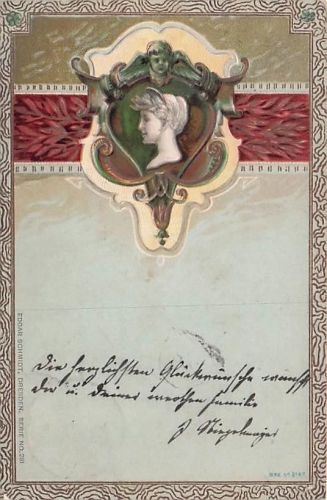 EDGAR SCHMIDT, DRESDEN, SERIE NO. 281
Die herzlichsten Glückwünsche wünscht
Dir u. Deiner werthen Familie
J